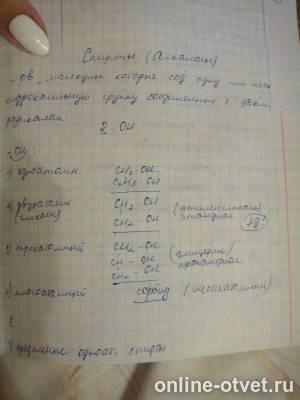 Спирты (Алканолы)
- ов, молекулы которые сод одну или неск
гидроксильную группу соединенных с
радикалом
R - OH
- OH:
1) одноатомн. CH3 - OH
C2H5 - OH
2) двухатомн CH2 - OH (этиленгликоль)
(гликоли) CH2 - OH этандиол
3) трехатомный CH2 - OH (глицерин)
CH - OH пропантриол
CH2 - OH
многоатомный сорбид (шестиатомный)
R
1) предельные одноат. спирты
online-otvet.ru